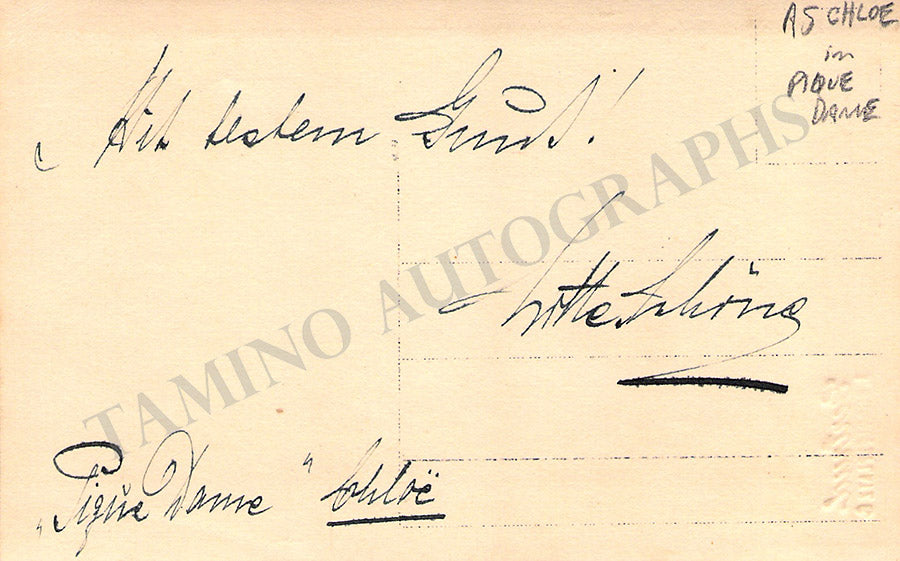 AS CHLOE
in
PIQUE
DAME
Mit bestem Gruß!
TAMINO AUTOGRAPHS
Lotte Schöne
„Pique Dame" Chloë